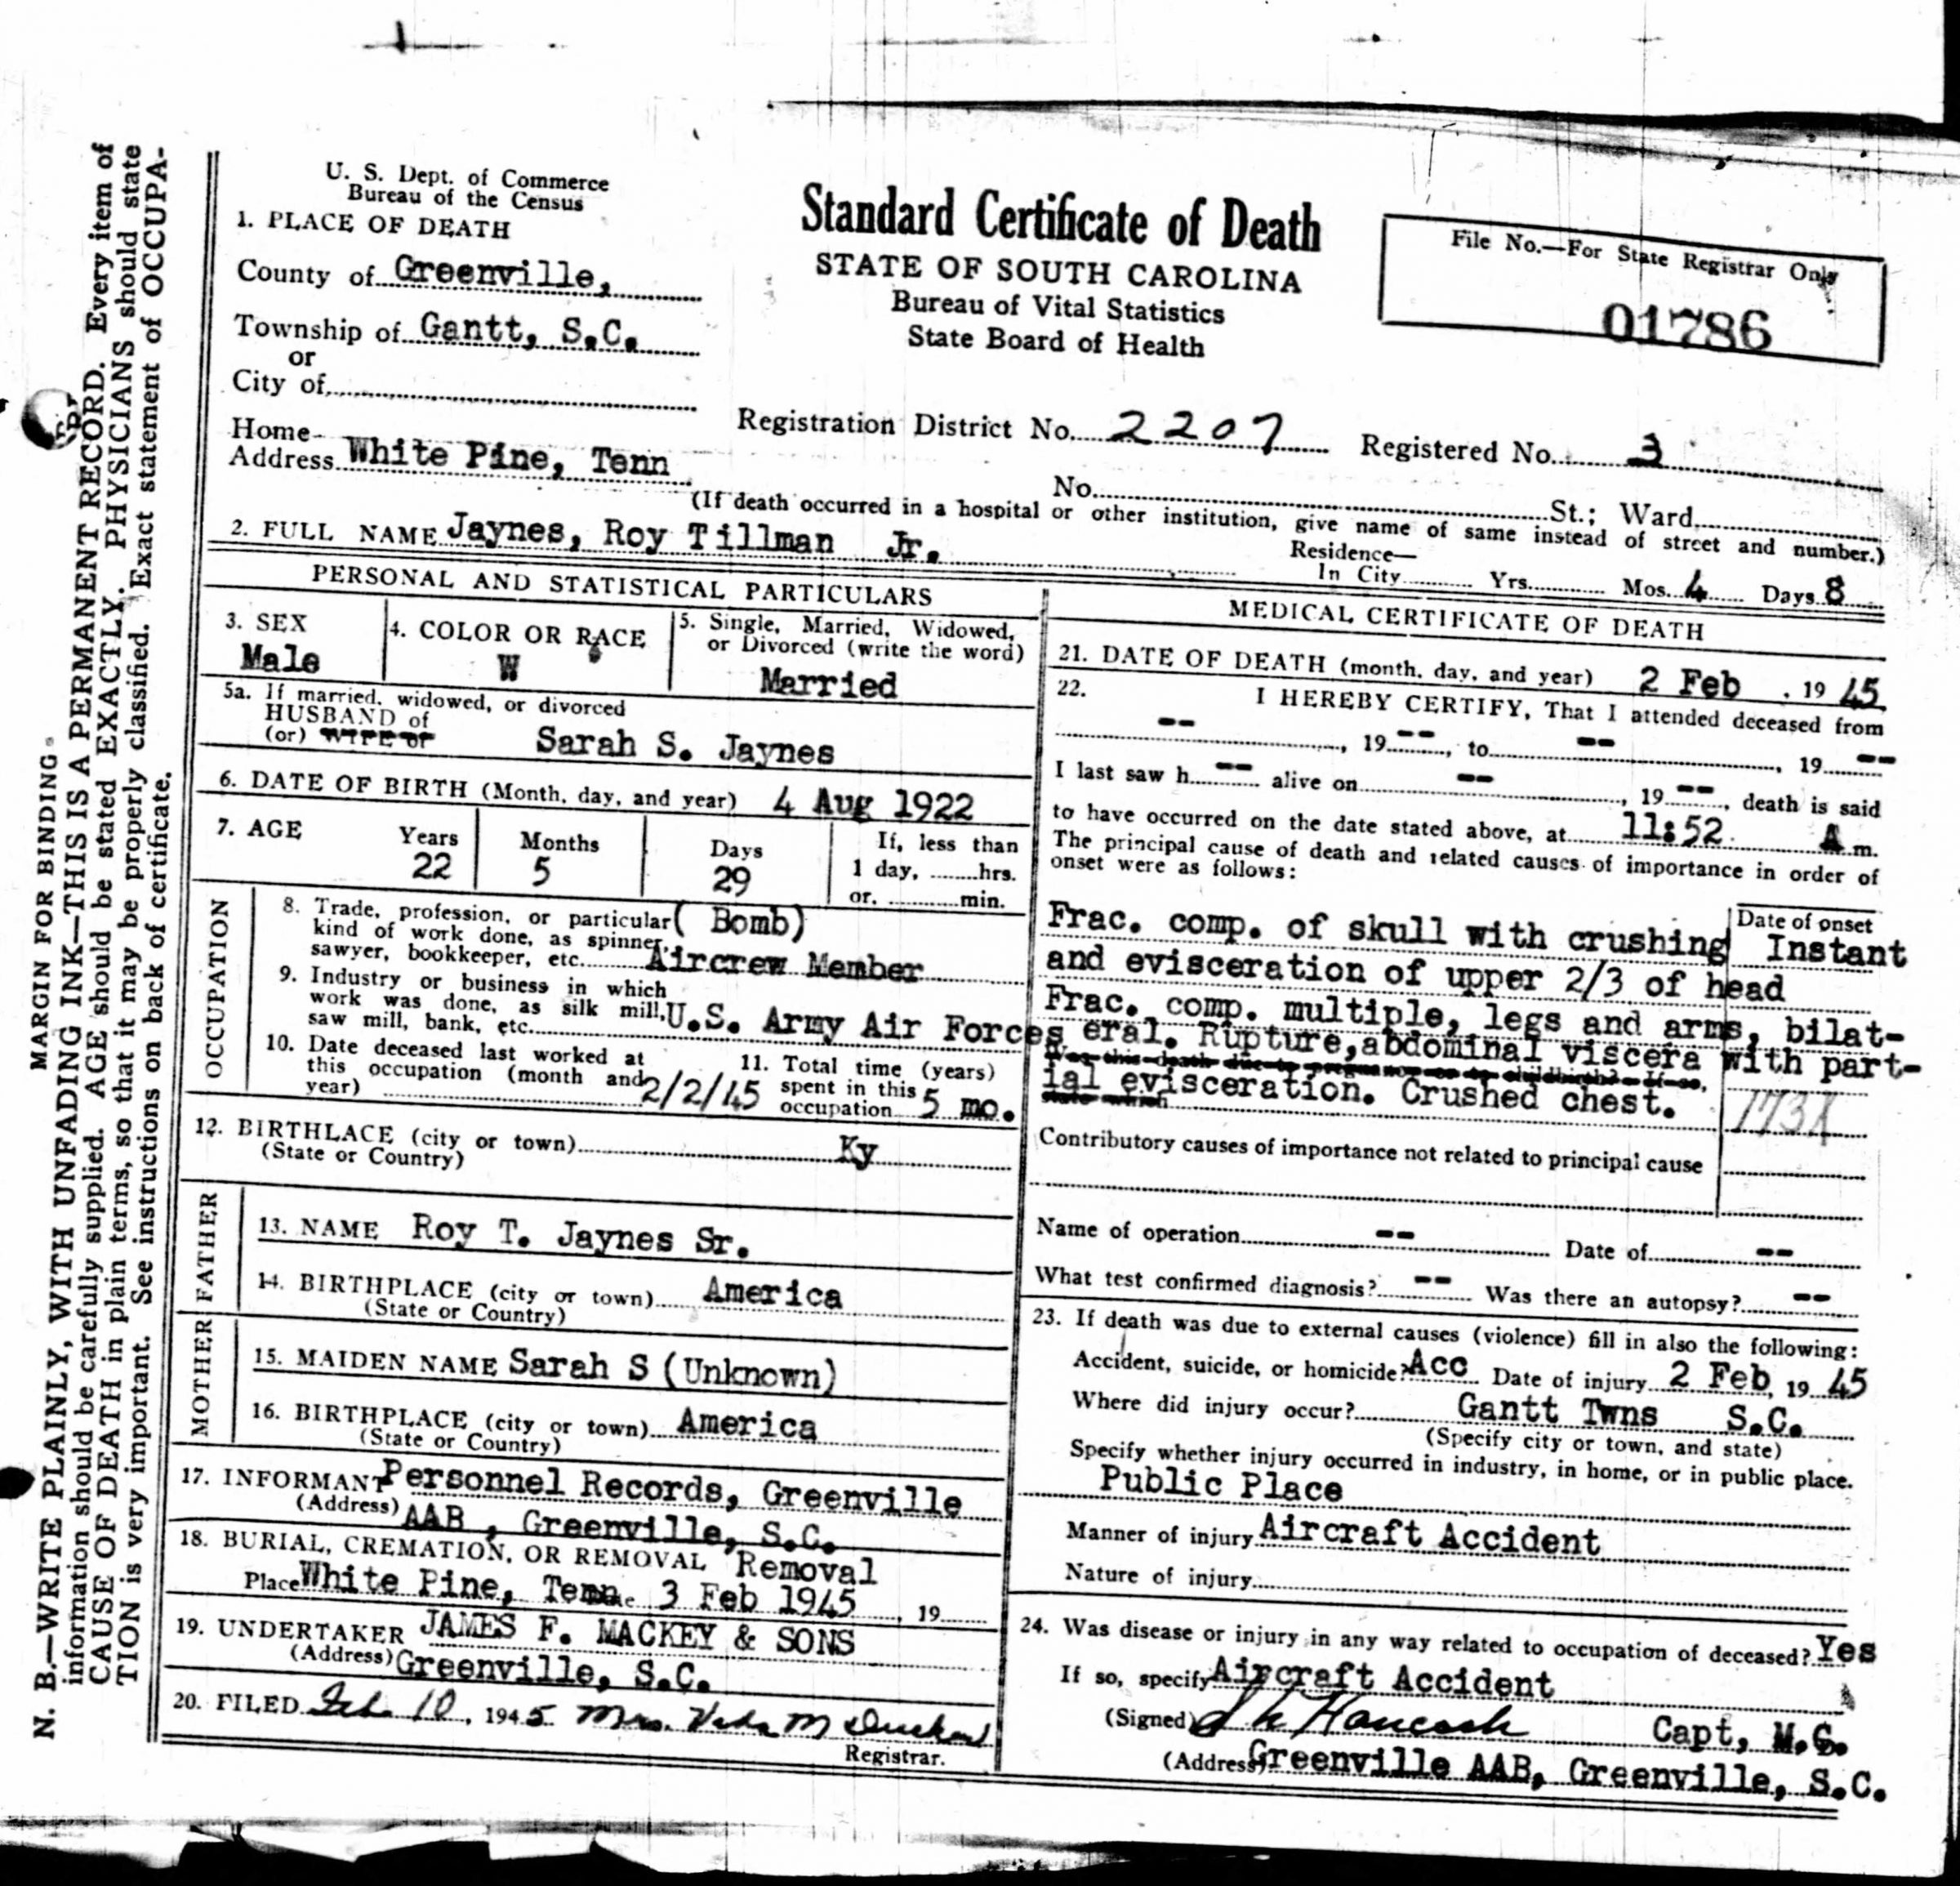 U. S. Dept. of Commerce
Bureau of the Census
1. PLACE OF DEATH
County of Greenville,
Township of Gantt, S.C.
or
City of
Home
Address White Pine, Tenn
Standard Certificate of Death
STATE OF SOUTH CAROLINA
Bureau of Vital Statistics
State Board of Health
File No.—For State Registrar Only
01786
Registration District No. 2207 Registered No. 3
No. St.; Ward
(If death occurred in a hospital or other institution, give name of same instead of street and number.)
2. FULL NAME Jaynes, Roy Tillman Jr.
Residence—
In City Yrs. Mos. 4 Days 8
PERSONAL AND STATISTICAL PARTICULARS
3. SEX
Male
4. COLOR OR RACE
W
5. Single, Married, Widowed,
or Divorced (write the word)
Married
5a. If married, widowed, or divorced
HUSBAND of
(or) WIFE of Sarah S. Jaynes
6. DATE OF BIRTH (Month, day, and year) 4 Aug 1922
7. AGE Years Months Days If, less than
22 5 29 1 day, hrs.
or, min.
OCCUPATION
8. Trade, profession, or particular ( Bomb)
kind of work done, as spinner,
sawyer, bookkeeper, etc. Aircrew Member
9. Industry or business in which
work was done, as silk mill,
saw mill, bank, etc. U.S. Army Air Forces
10. Date deceased last worked at
this occupation (month and
year) 2/2/45
11. Total time (years)
spent in this
occupation 5 mo.
12. BIRTHLACE (city or town) Ky
(State or Country)
FATHER
13. NAME Roy T. Jaynes Sr.
14. BIRTHPLACE (city or town) America
(State or Country)
MOTHER
15. MAIDEN NAME Sarah S (Unknown)
16. BIRTHPLACE (city or town) America
(State or Country)
17. INFORMANT Personnel Records, Greenville
(Address) AAB , Greenville, S.C.
18. BURIAL, CREMATION, OR REMOVAL Removal
Place White Pine, Tenn 3 Feb 1945 , 19
19. UNDERTAKER JAMES F. MACKEY & SONS
(Address) Greenville, S.C.
20. FILED Feb. 10, 1945 Mrs. Veda M
Registrar.
MEDICAL CERTIFICATE OF DEATH
21. DATE OF DEATH (month, day, and year) 2 Feb , 19 45
22. I HEREBY CERTIFY, That I attended deceased from
-- , 19 -- , to -- , 19 --
I last saw h -- alive on -- , 19 -- , death is said
to have occurred on the date stated above, at 11:52 A m.
The principal cause of death and related causes of importance in order of
onset were as follows:
Date of onset
Frac. comp. of skull with crushing Instant
and evisceration of upper 2/3 of head
Frac. comp. multiple, legs and arms, bilat-
eral. Rupture, abdominal viscera with part-
Was this death due to pregnancy or to childbirth? If so,
ial evisceration. Crushed chest.
state which
Contributory causes of importance not related to principal cause
Name of operation -- Date of --
What test confirmed diagnosis? -- Was there an autopsy? --
23. If death was due to external causes (violence) fill in also the following:
Accident, suicide, or homicide? Acc Date of injury 2 Feb, 19 45
Where did injury occur? Gantt Twns S.C.
(Specify city or town, and state)
Specify whether injury occurred in industry, in home, or in public place.
Public Place
Manner of injury Aircraft Accident
Nature of injury
24. Was disease or injury in any way related to occupation of deceased? Yes
If so, specify Aircraft Accident
(Signed) Hancock Capt, M.C.
(Address) Greenville AAB, Greenville, S.C.
MARGIN FOR BINDING
N. B.—WRITE PLAINLY, WITH UNFADING INK—THIS IS A PERMANENT RECORD. Every item of
information should be carefully supplied. AGE should be stated EXACTLY. PHYSICIANS should state
CAUSE OF DEATH in plain terms, so that it may be properly classified. Exact statement of OCCUPA-
TION is very important. See instructions on back of certificate.